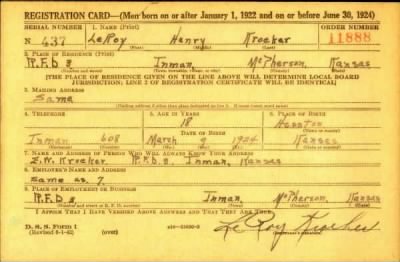 REGISTRATION CARD—(Men born on or after January 1, 1922 and on or before June 30, 1924)
SERIAL NUMBER 1. NAME (Print) ORDER NUMBER
N 437 LeRoy Henry Kroeker 11888
(First) (Middle) (Last)
2. PLACE OF RESIDENCE (Print)
R.F.D 3 Inman, McPherson, Kansas
[THE PLACE OF RESIDENCE GIVEN ON THE LINE ABOVE WILL DETERMINE LOCAL BOARD
JURISDICTION; LINE 2 OF REGISTRATION CERTIFICATE WILL BE IDENTICAL]
3. MAILING ADDRESS
Same
[Mailing address if other than place indicated on line 2. If same insert word same]
4. TELEPHONE 5. AGE IN YEARS 6. PLACE OF BIRTH
18 Hesston
DATE OF BIRTH
Inman 608 March 9 1924 Kansas
7. NAME AND ADDRESS OF PERSON WHO WILL ALWAYS KNOW YOUR ADDRESS
E.W. Kroeker, R.F.D. 3, Inman, Kansas
8. EMPLOYER'S NAME AND ADDRESS
Same as 7.
9. PLACE OF EMPLOYMENT OR BUSINESS
R.F.D 3 Inman, McPherson, Kansas
I AFFIRM THAT I HAVE VERIFIED ABOVE ANSWERS AND THAT THEY ARE TRUE.
D. S. S. FORM 1
(Revised 6-1-42) (over) LeRoy Kroeker